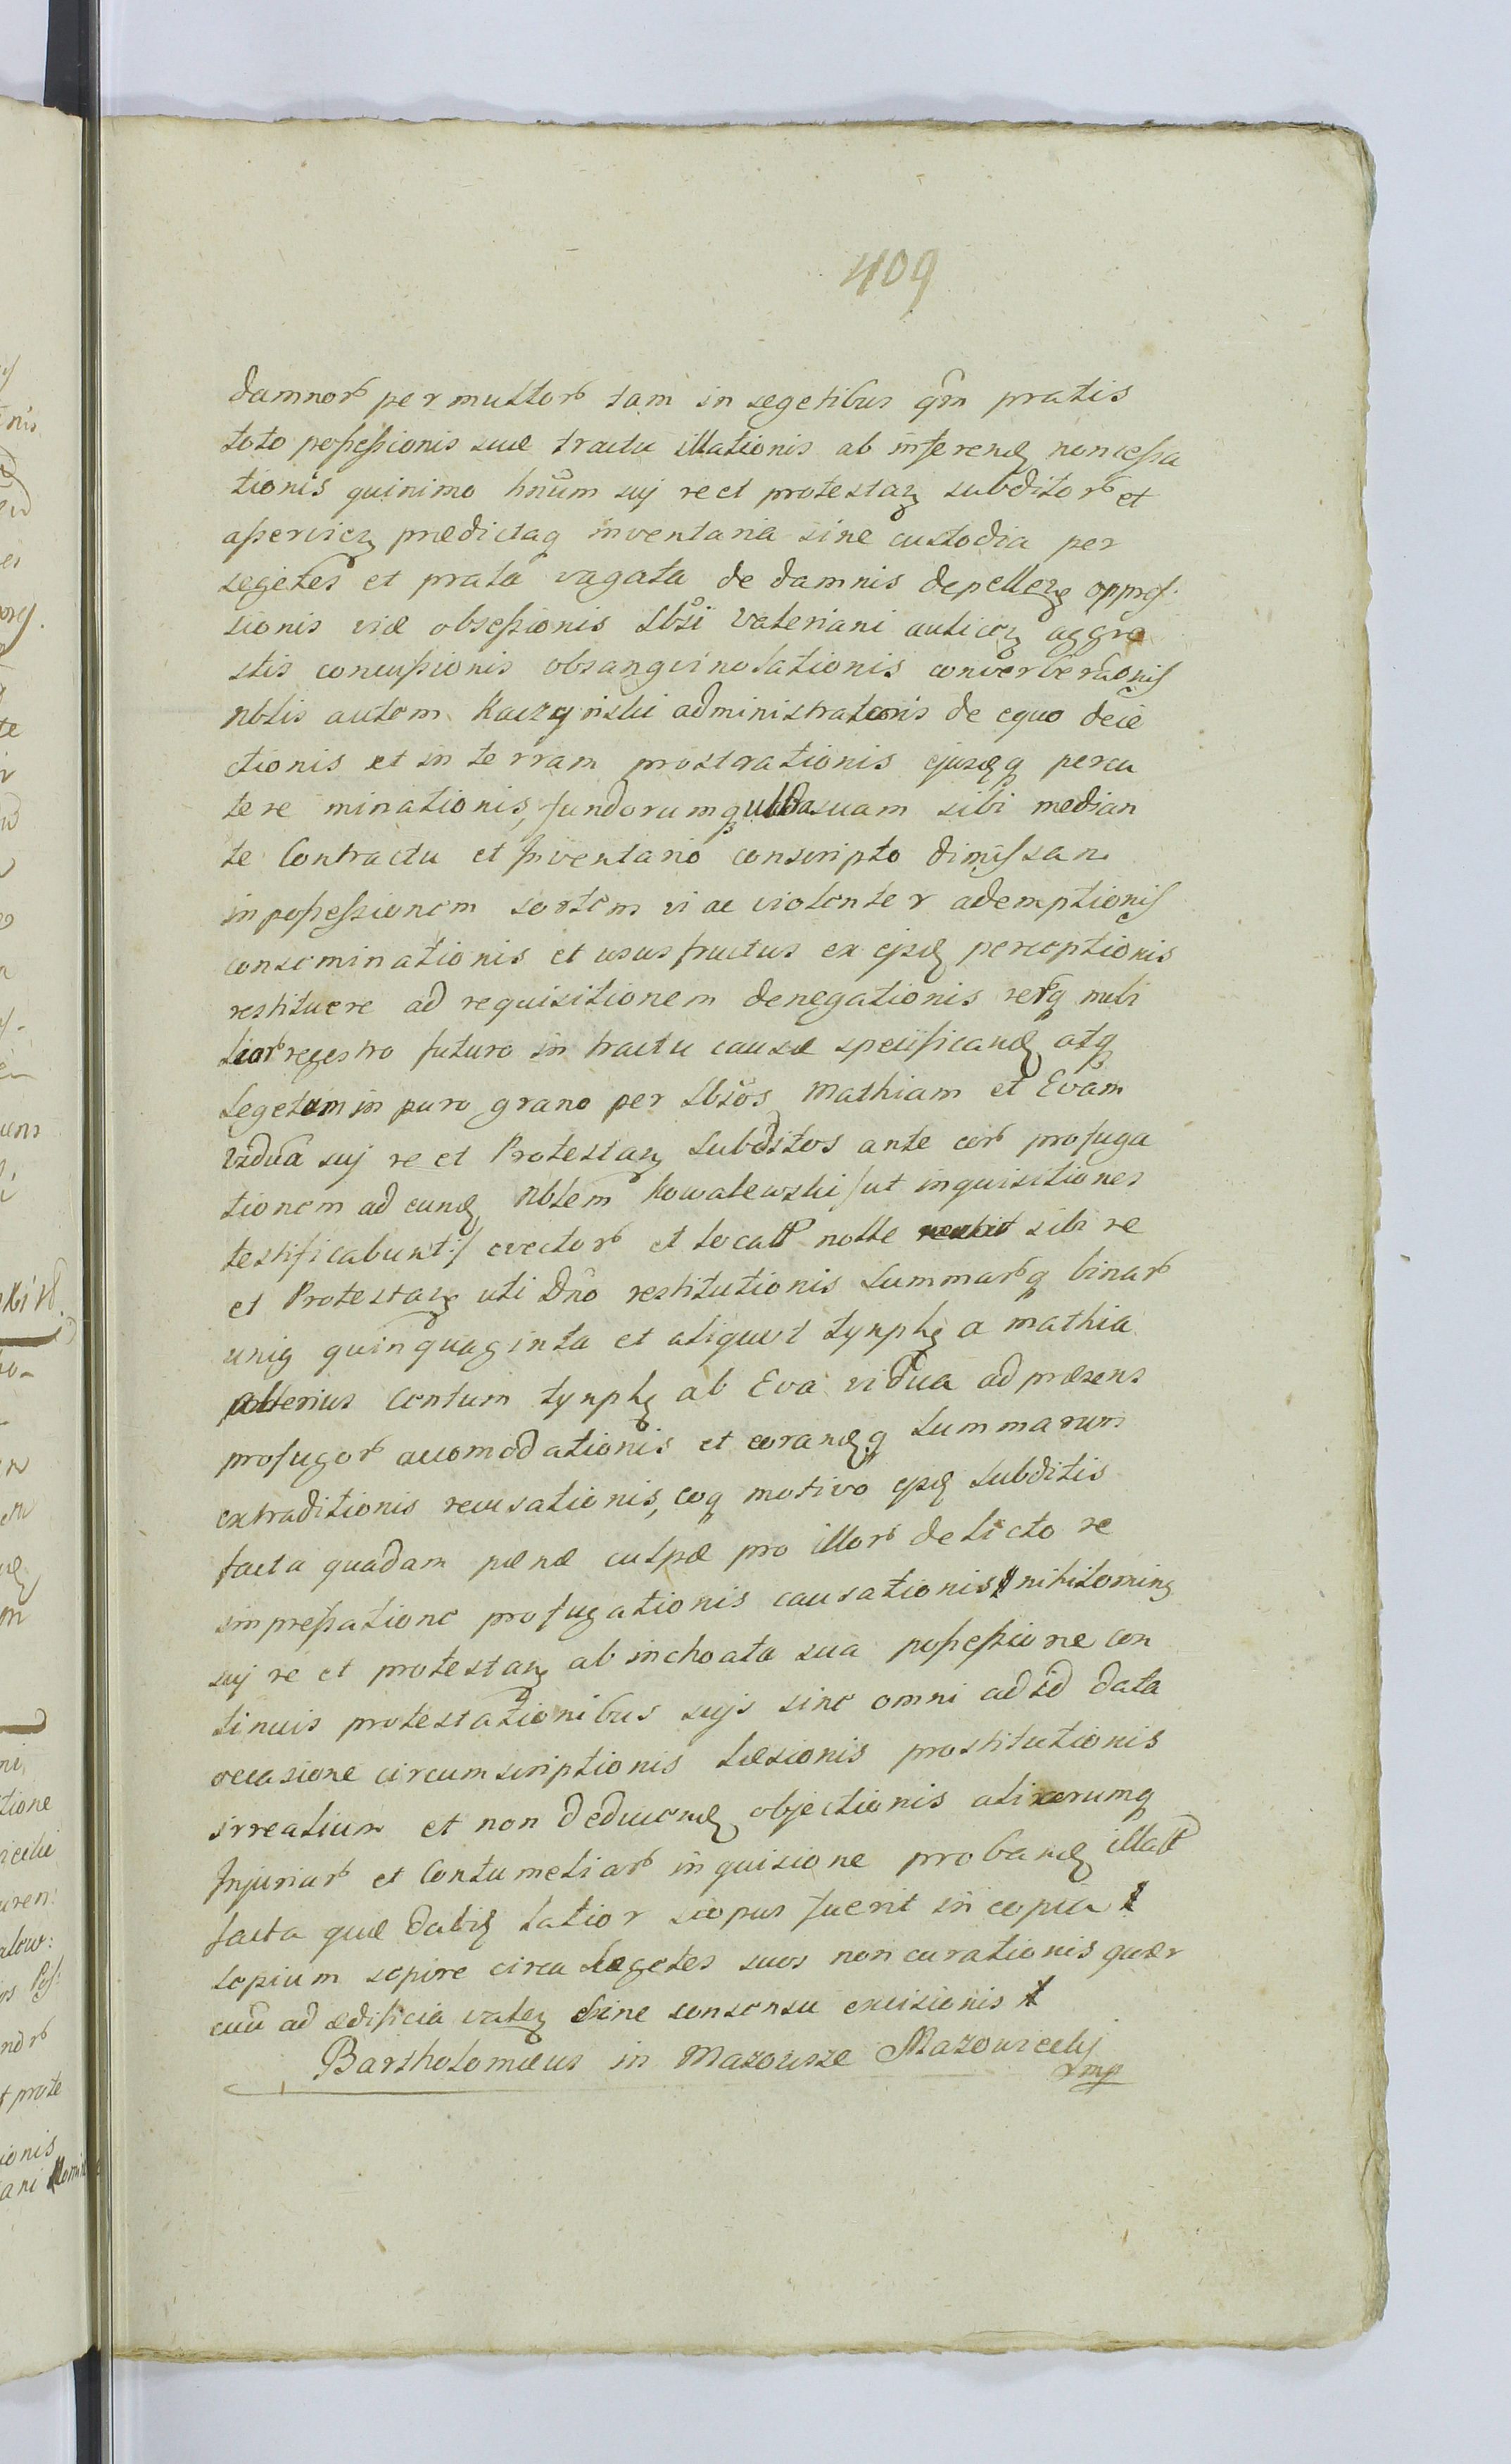 409
damnorb permultorb tam in segetibus qm̃ pratis
toto possessionis suæ tractu illationis ab inferend noncessa
tionis quinimo hnũm suj re et protestaz subditorb et
asserviez prædictaq inventaria sine custodia per
segetes et prata vagata de damnis depellez oppres
sionis viæ obsessionis Lbsi Valeriani auticz aggre
stis concussionis obsangvinolationis converberaõnis
Nblis autem Kaczynski administratoris de equo deie
ctionis et in terram prostrationis ejusdq percu
tere minationis, fundorumq suam sibi median
te Contractu et Inventario conscripto dimissam
in possessionem sortem vi ac violenter ademptionis
conseminationis et ususfructus ex ejsd perceptionis
restituere ad requisitionem denegationis
regestro futuro in tractu causæ specificand atq
Segetum in puro grano per Lbsos Mathiam et Evam
Vidua suj re et Protestaz Subditos ante eorb profuga
tionem ad eund Nblem Kowalewski /ut inquisitiones
testificabunt:/ evectorb et locatt nolle sibi re
et Protestaz uti Dño restitutionis Summarbq binarb
uniq quinquaginta et aliquot tynph a Mathia
alterius Centum tynph ab Eva vidua ad præsens
profugorb accomodationis et eorandq Summarum
extraditionis recusationis, eoq motivo ejsd Subditis
facta quadam pænæ culpæ pro illorb delicto re
impressatione profugationis causationis nihilominq
suj re et protestaz ab inchoata sua possessione con
tinuis protestationibus sujs sine omni ad id data
occasione circumscriptionis Læsionis prostitutionis
irrealium et non deducend objectionis aliarumq
Injuriarb et Contumeliarb inquisione proband illatt
facta quæ datis latior scopus fuerit in copia
sepium sepire circa Segetes suos non curationis quer
cuũ ad ædificia valez sine consensu excisionis
Bartholomæus in Mazowsze Mazowiecki
mp